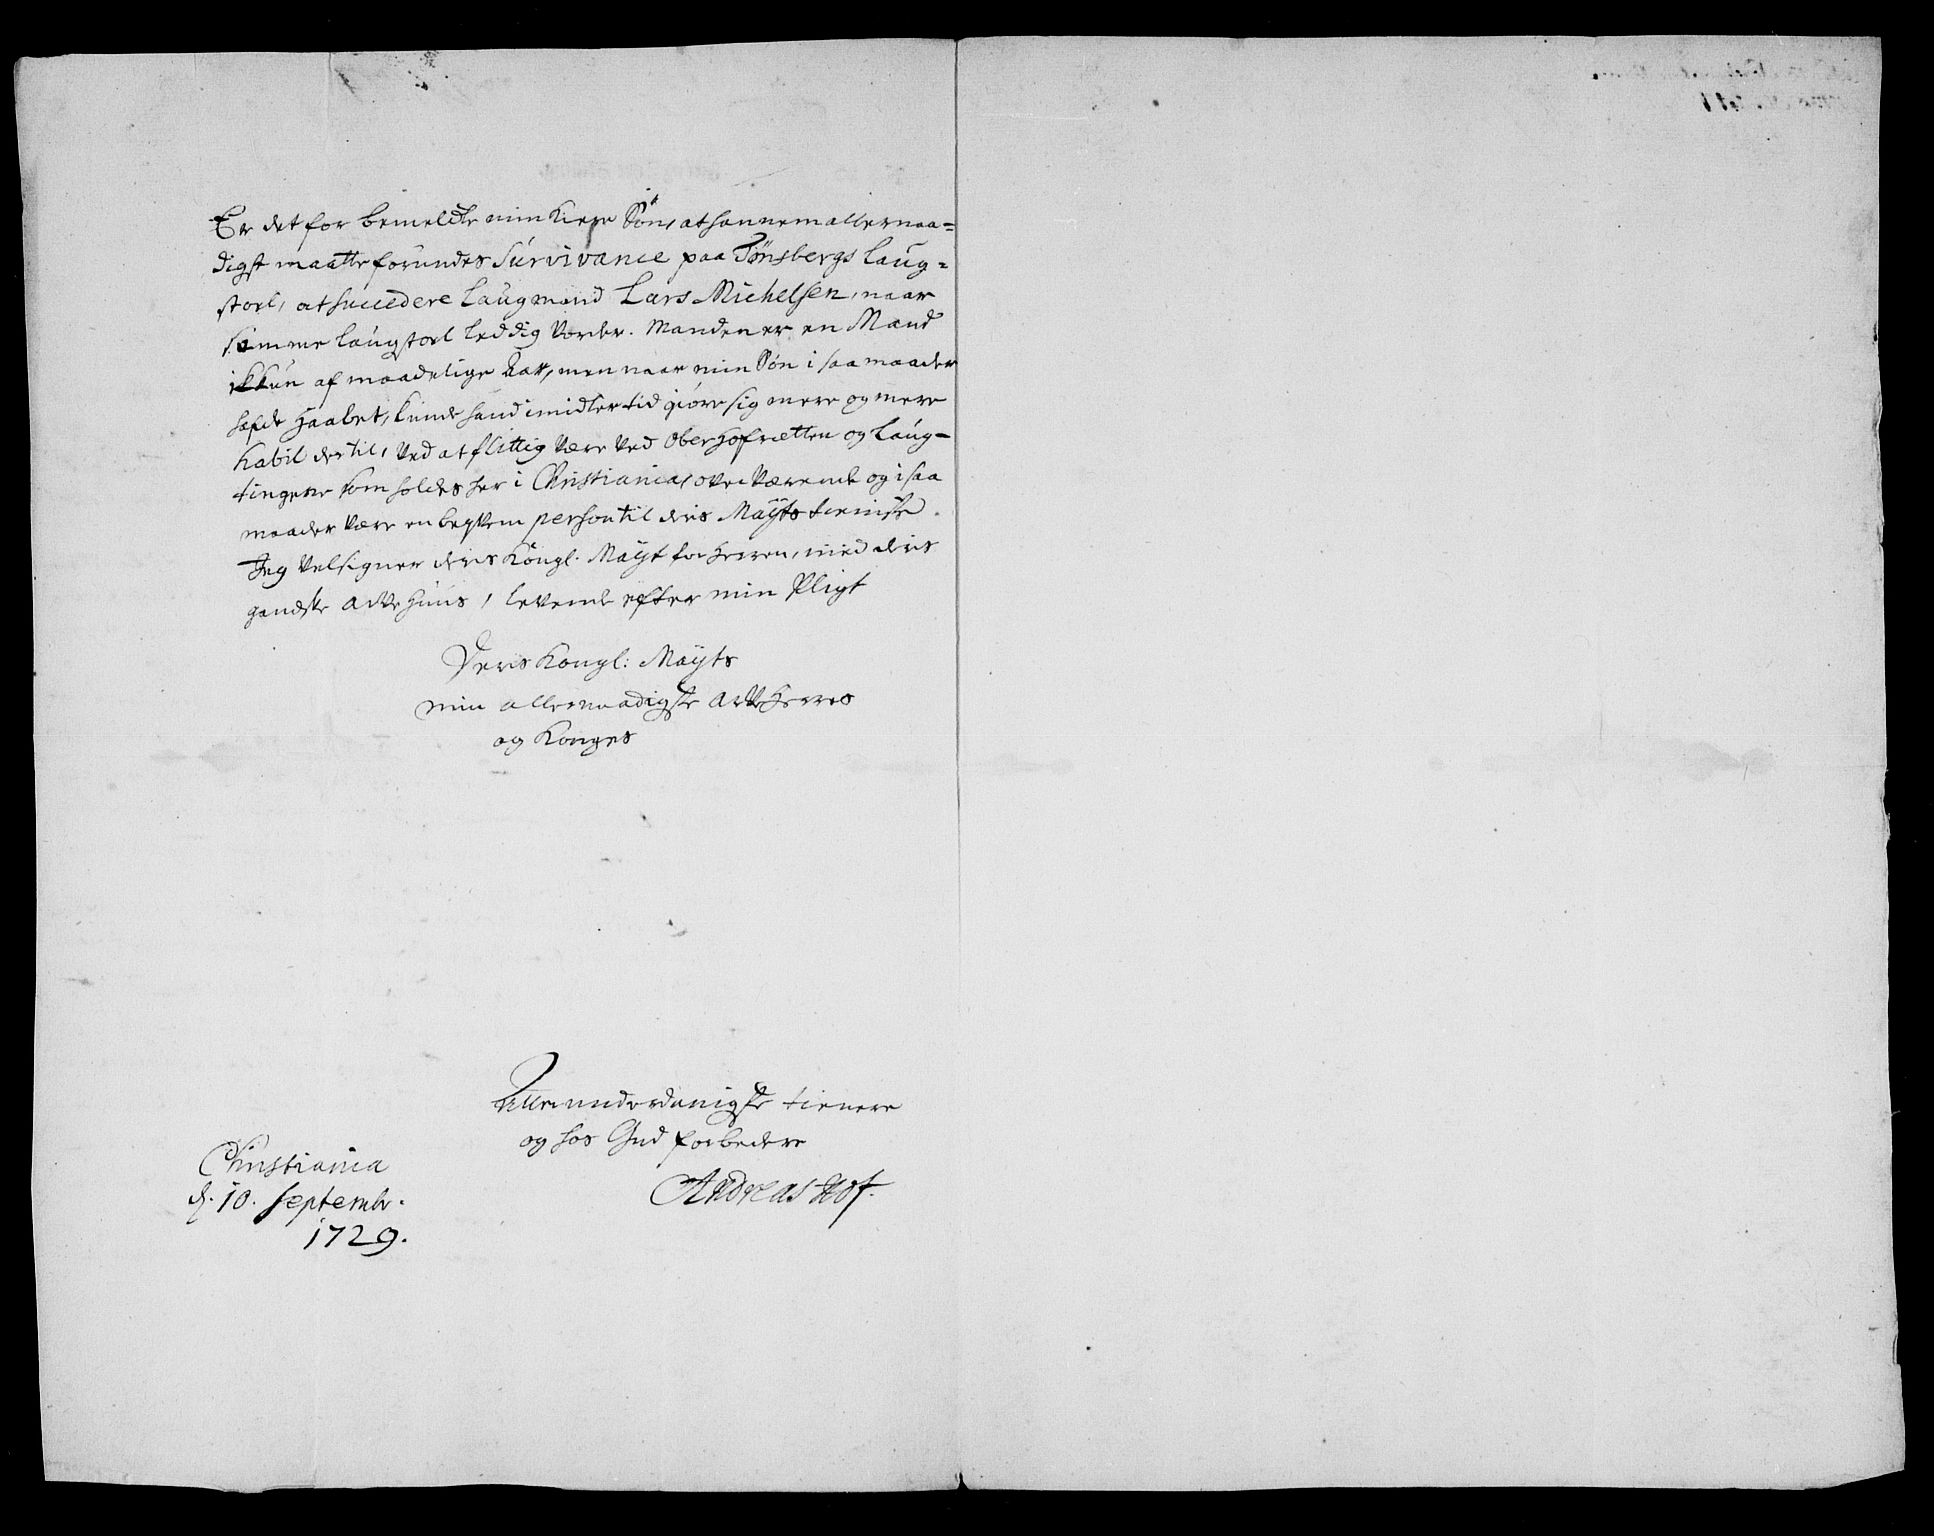 Er det for bemeldte min kiere Søn, at hannem allernaa=
digst maatte forundes Survivance paa Tønsbergs Laug=
stoel, at succedere Laugmand Lars Michelsen, naar
samme Laugstoel leddig vorder. Manden er en Mand
ikkun af maadelige Aar, men naar min Søn i saa maader
hafde Haabet, kunde hand imidlertid giøre sig mere og mere
habil dertil, ved at flittig være ved OberHofretten og Laug=
tingene som holdes her i Christiania, overværende og i saa
maader være en beqvem person til deris Mayts tieniste.
Jeg velsigner deris Kongl. Mayt for Herren, med deris
gandske ArfveHuus, levende efter min Pligt
Deris Kongl: Mayts
min allernaadigste ArfveHerres
og Konges
Allerunderdanigste tienere
og hos Gud forbedere
Andreas Hof.
Christiania
d. 10. Septembr.
1729.